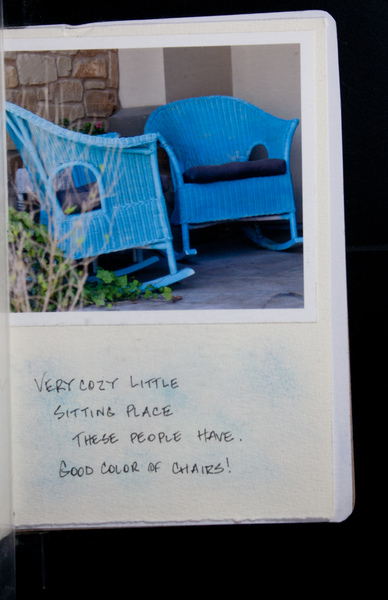 VERY COZY LITTLE
SITTING PLACE
THESE PEOPLE HAVE.
GOOD COLOR OF CHAIRS!